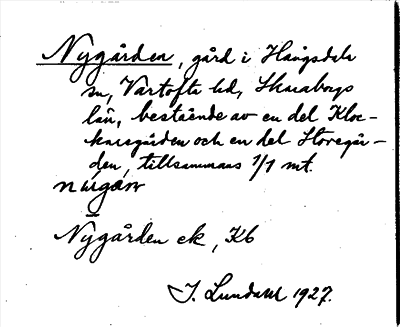 Nygården, gård i Håvgsdals
sn, Vartofta hd, Skaraborgs
län, bestående av en del Kloc-
karegården och en del Storegår-
den, tillsammans 1/1 mt.
Nygården ek, Kb
J. Lundahl 1927.